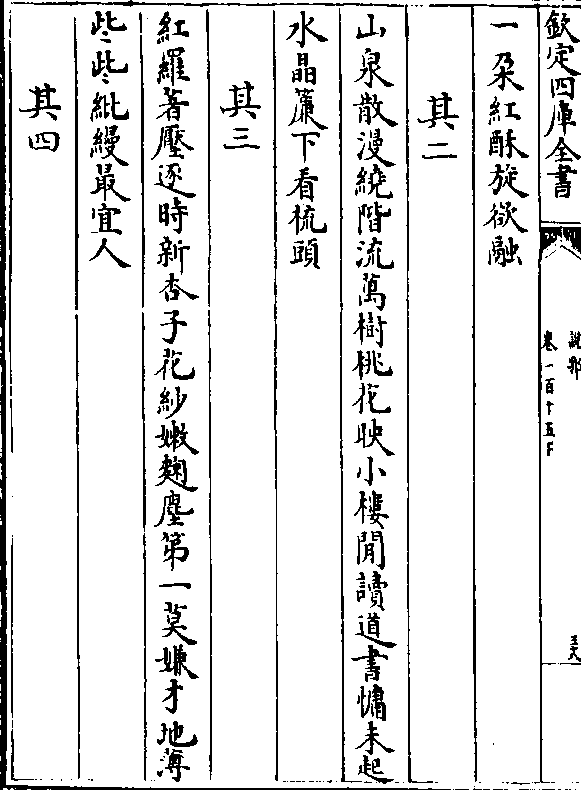 欽定四庫全書
說郛
卷一百十五下
一朶紅酥旋欲融
其二
山泉散漫繞階流萬樹桃花映小樓閒讀道書慵未起
水晶簾下看梳頭
其三
紅羅著壓逐時新杏子花紗嫩麴塵第一莫嫌才地薄
些些紕縵最宜人
其四